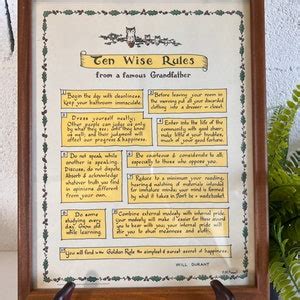 Ten Wise Rules
from a famous Grandfather
1 Begin the day with cleanliness.
Keep your bathroom immaculate.
2 Before leaving your room in
the morning put all your discarded
clothing into a drawer or closet.
3 Dress yourself neatly;
Other people can judge us only
by what they see; until they know
us well; and their judgment will
affect our progress & happiness.
4 Enter into the life of the
community with good cheer;
make little of your troubles,
much of your good fortune.
5 Do not speak while
another is speaking.
Discuss, do not dispute.
Absorb & acknowledge
whatever truth you find
in opinions different
from your own.
6 Be courteous & considerate to all,
especially to those who oppose you.
7 Reduce to a minimum your reading,
hearing & watching of materials intended
for immature minds; your mind is formed by
what it takes in. Don't be a wastebasket.
8 Do some
studying every
day. Grow old
while learning.
9 Combine external modesty with internal pride;
your modesty will make it easier for those around
you to bear with you; your internal pride will
stir you to shun meanness and sloth.
10 You will find in the Golden Rule the simplest & surest secret of happiness.
WILL DURANT